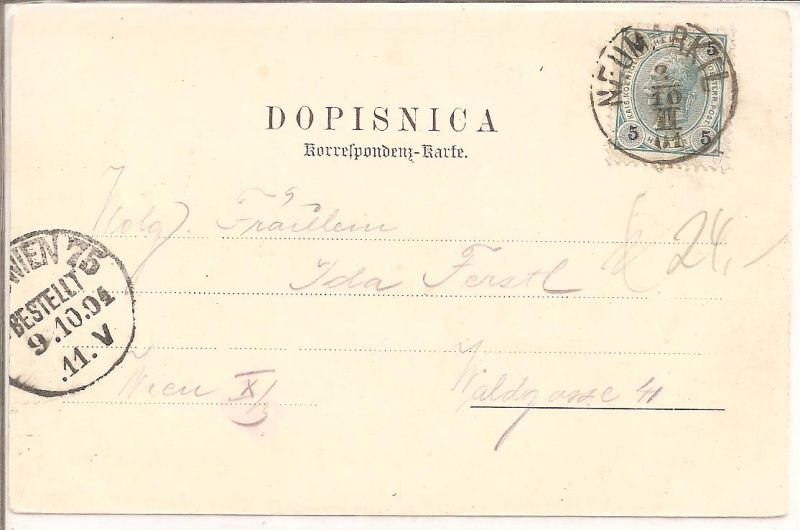 NEUMARKTL
5
5 5
DOPISNICA
Korreſpondenz-Karte.
Fräulein
Ida Ferstl
24,
WIEN 75
BESTELLT
9.10.04
.11.V
Wien X/3
Waldgasse 41